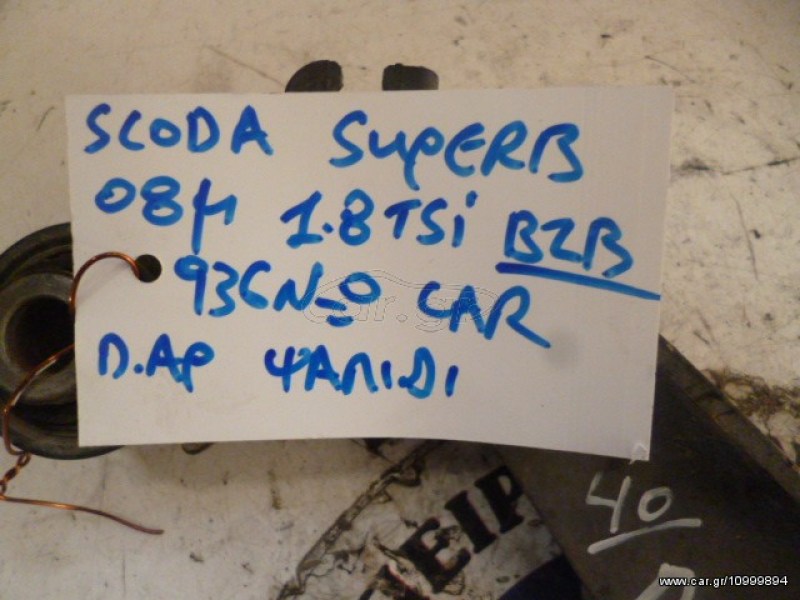 SCODA SupERB
08μ 1.8TSi BZB
936Nº CAR
Δ.ΑΡ ΨΑΛΙΔΙ
ΝΕΙΡ
40
car.gr
www.car.gr/10999894